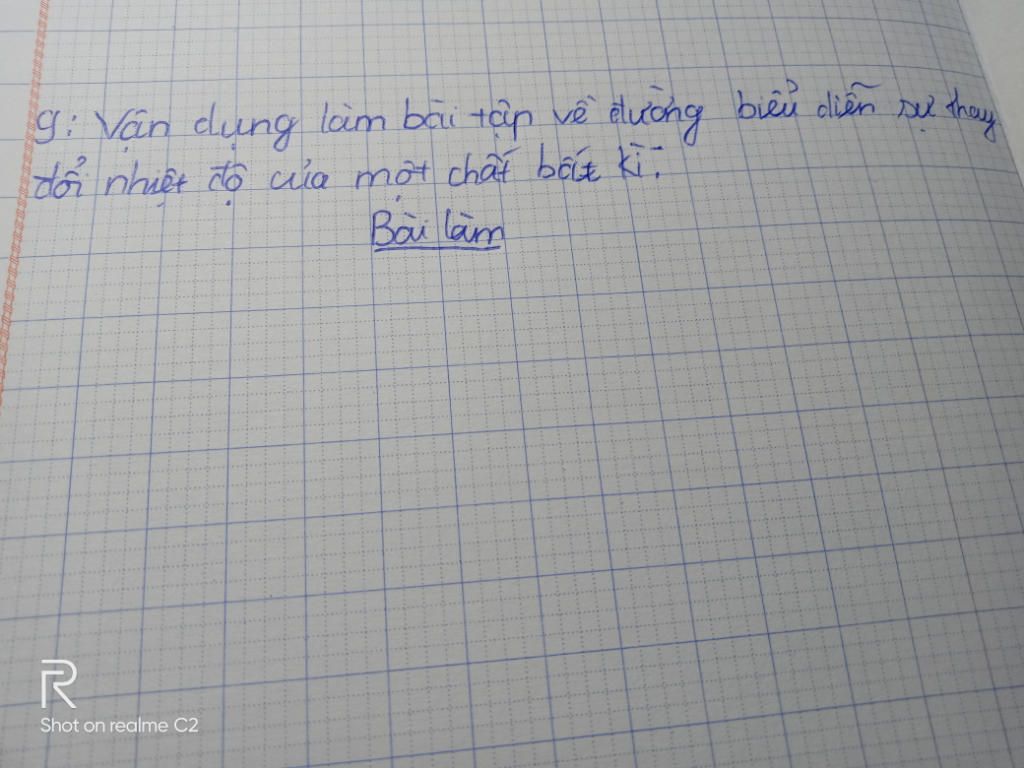 9: Vận dụng làm bài tập về đường biểu diễn sự thay
đổi nhiệt độ của một chất bất kì.
Bài làm
R
Shot on realme C2